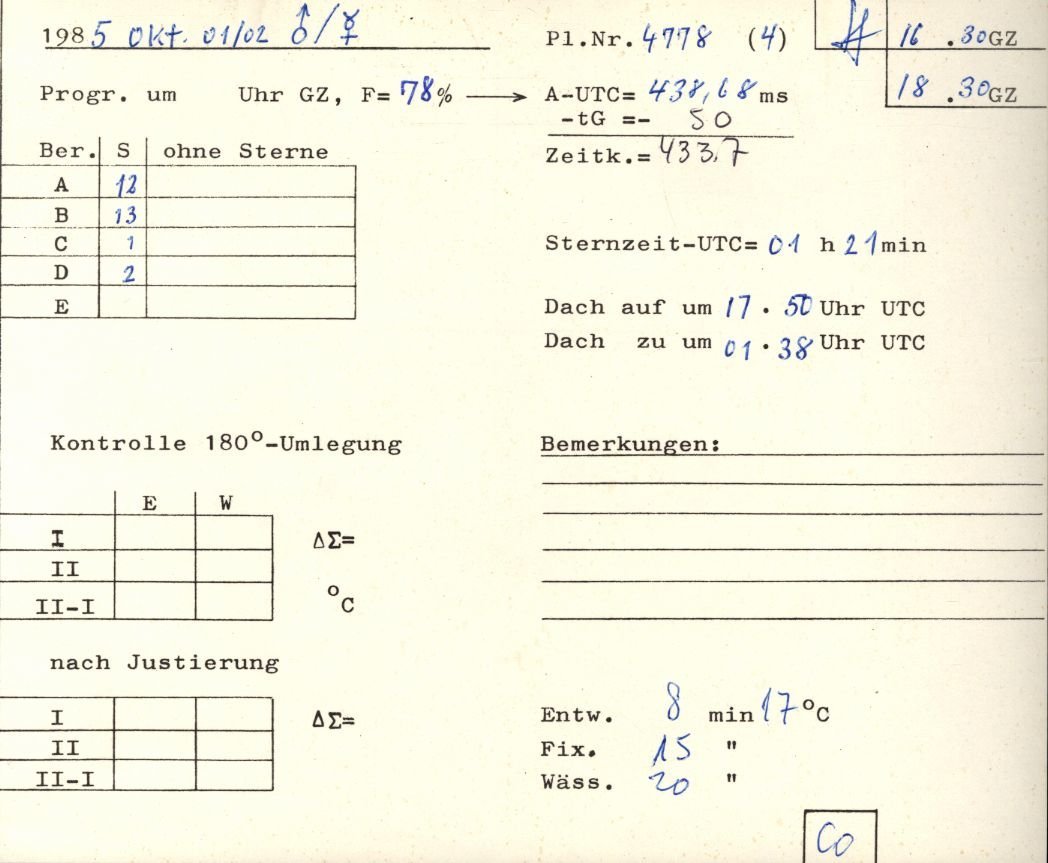 1985 Okt. 01/02 ♂/☿ Pl.Nr. 4778 (4) 16 .30GZ
Progr. um Uhr GZ, F= 78% → A-UTC= 438,68 ms 18 .30GZ
-tG =- 50
Zeitk.= 433.7
Ber. S ohne Sterne
A 12
B 13
C 1
D 2
E
Sternzeit-UTC= 01 h 21min
Dach auf um 17 . 50 Uhr UTC
Dach zu um 01 . 38 Uhr UTC
Kontrolle 180°-Umlegung
E W
I ΔΣ=
II
II-I °C
nach Justierung
I ΔΣ=
II
II-I
Bemerkungen:
Entw. 8 min 17 °C
Fix. 15 "
Wäss. 20 "
Co